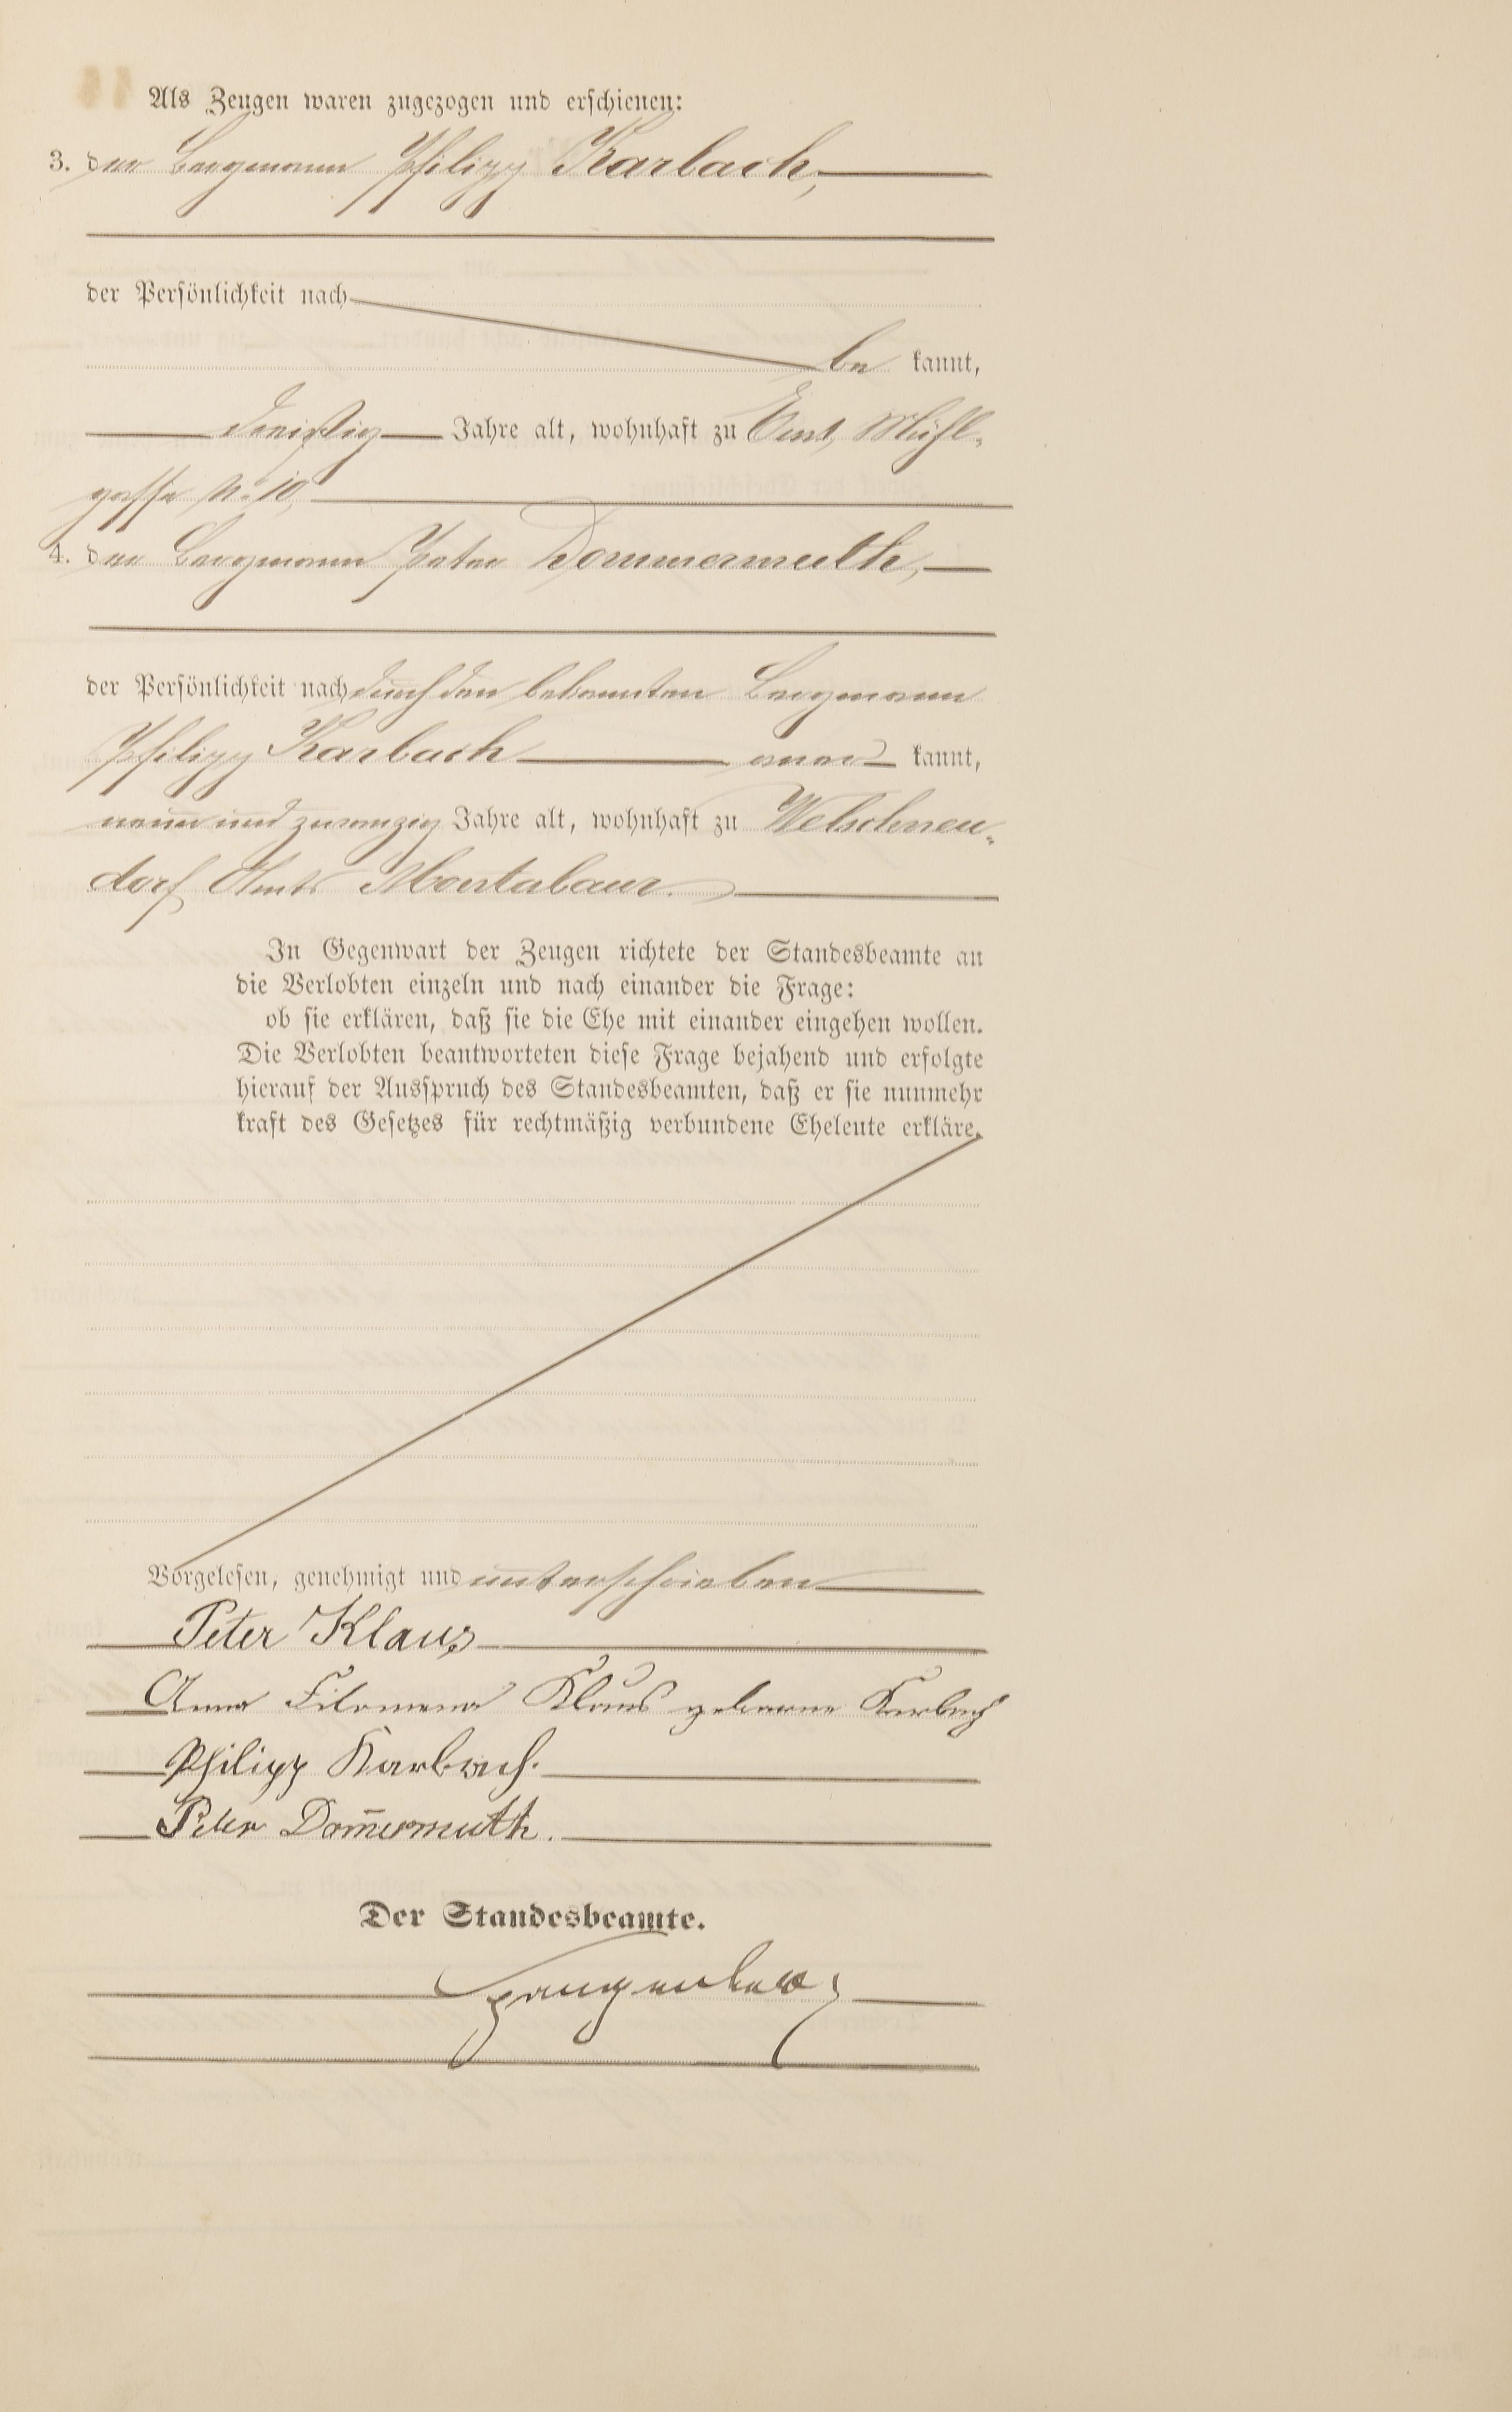 Als Zeugen waren zugezogen und erschienen:
3. der Bergmann Philipp Karbach,
der Persönlichkeit nach
be kannt,
dreißig Jahre alt, wohnhaft zu Ems, Mühl-
gasse No. 10,
4. der Bergmann Peter Dommermuth,
der Persönlichkeit nach durch den bekannten Bergmann
Philipp Karbach aner kannt,
neun und zwanzig Jahre alt, wohnhaft zu Welschneu-
dorf, Amts Montabaur.
In Gegenwart der Zeugen richtete der Standesbeamte an
die Verlobten einzeln und nach einander die Frage:
ob sie erklären, daß sie die Ehe mit einander eingehen wollen.
Die Verlobten beantworteten diese Frage bejahend und erfolgte
hierauf der Ausspruch des Standesbeamten, daß er sie nunmehr
kraft des Gesetzes für rechtmäßig verbundene Eheleute erkläre.
Vorgelesen, genehmigt und unterschrieben
Peter Klaus
Anna Filomena Klaus geborne Karbach
Philipp Karbach.
Peter Dom̄ermuth.
Der Standesbeamte.